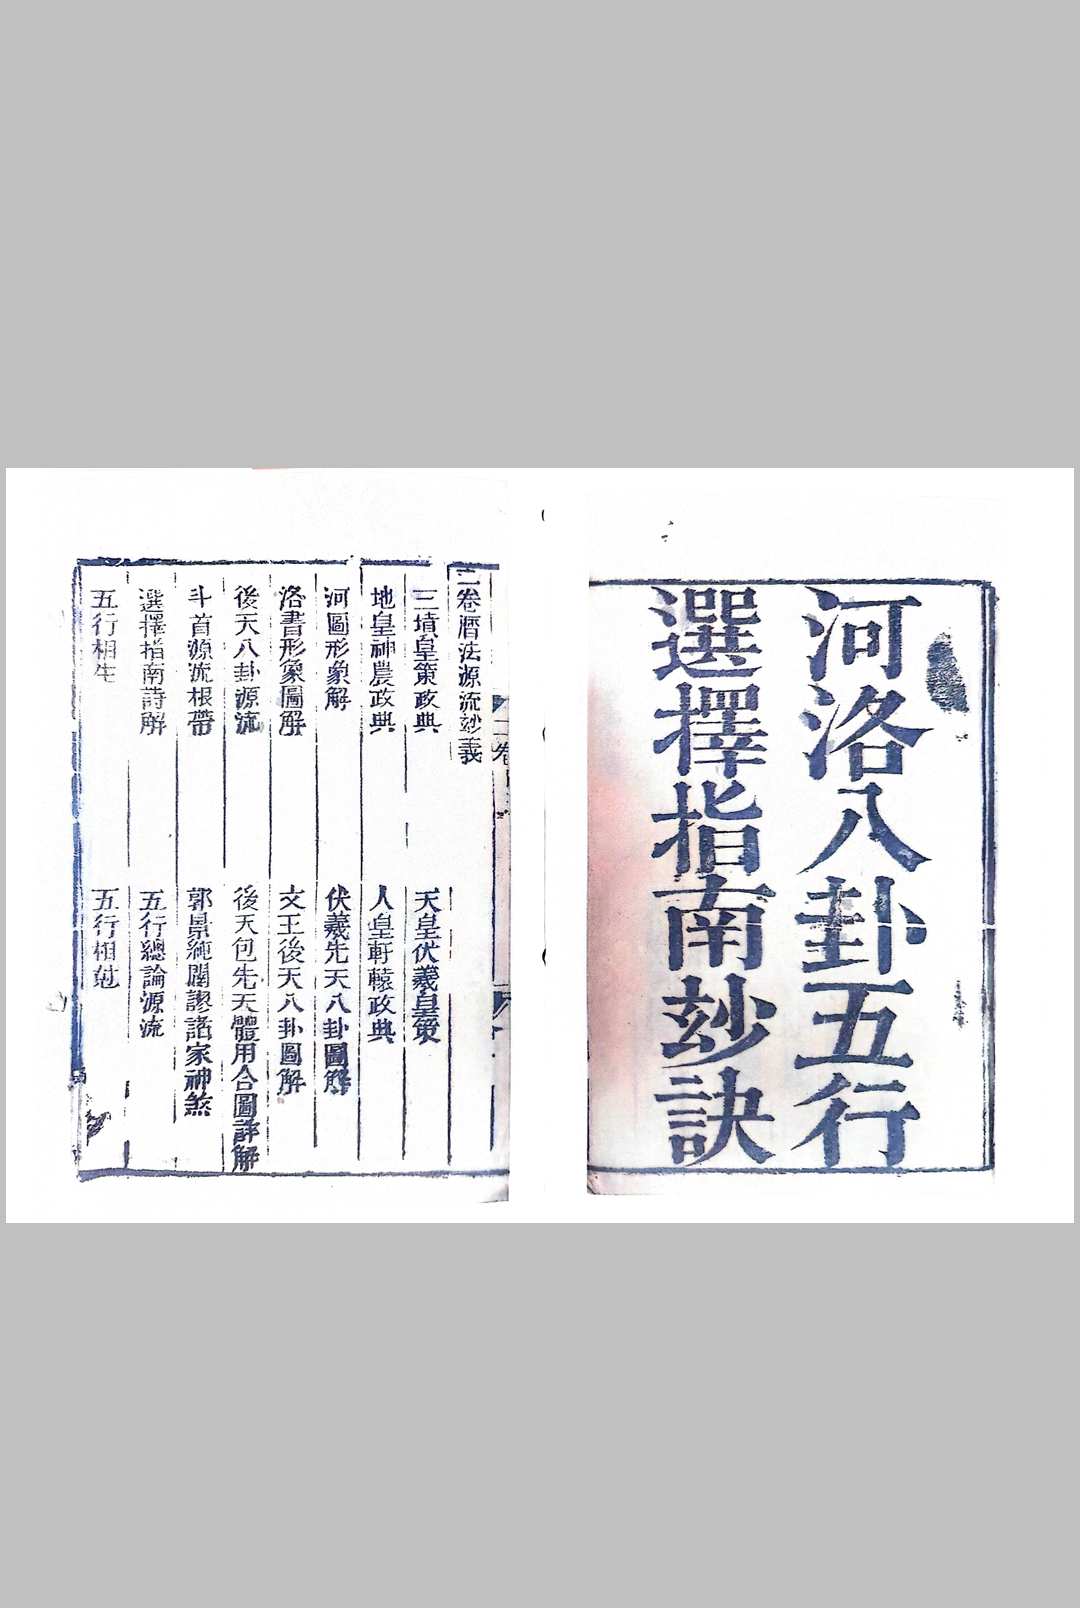 河洛八卦五行
選擇指南玅訣
二卷
二卷曆法源流玅義
三墳皇策政典
天皇伏羲皇策
地皇神農政典
人皇軒轅政典
河圖形象解
伏羲先天八卦圖解
洛書形象圖解
文王後天八卦圖解
後天八卦源流
後天包先天體用合圖詳解
斗首源流根蒂
郭景純闢謬諸家神煞
選擇指南詩解
五行總論源流
五行相生
五行相尅